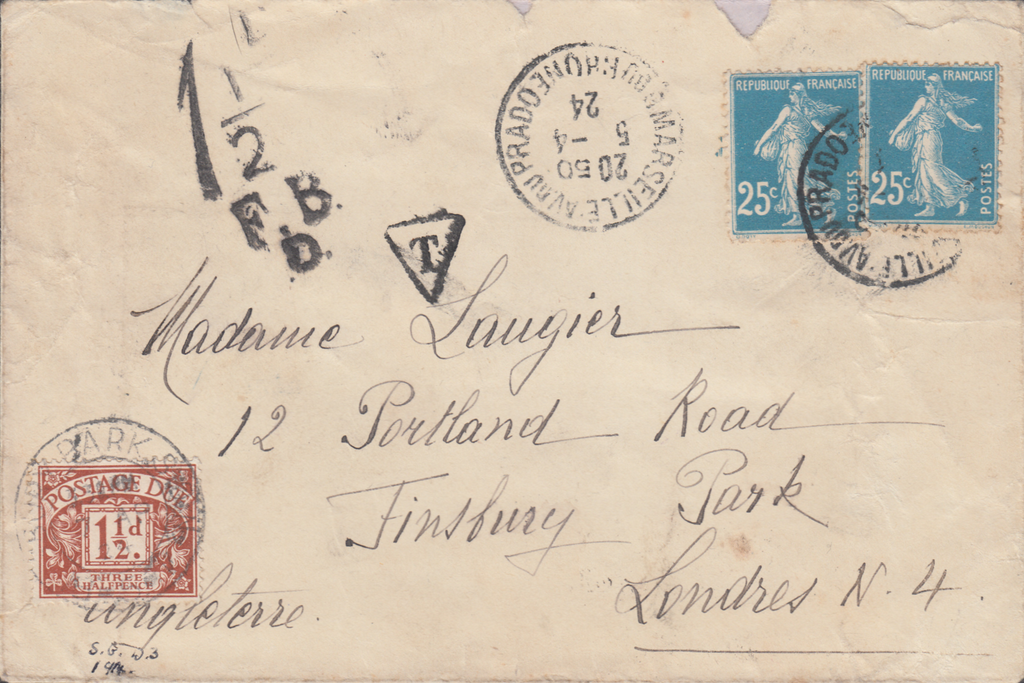 1 1/2
F.B.
D.
T.
MARSEILLE AV. DU PRADO
BOUCHES DU RHONE
20 50
5 -4
24
REPUBLIQUE FRANÇAISE
25c
POSTES
REPUBLIQUE FRANÇAISE
25c
POSTES
Madame Laugier
12 Portland Road
Finsbury Park
Londres N. 4
Angleterre.
PARK
POSTAGE DUE
1½d.
THREE
HALFPENCE
S.G. D.3